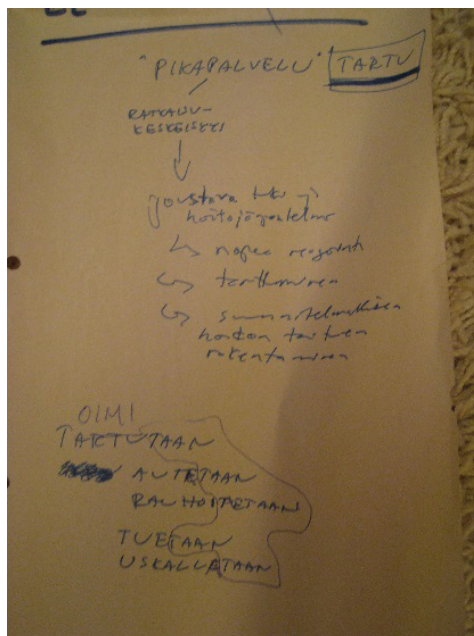 "PIKAPALVELU" TARTU
RATKAISU-
KESKEISYYS
joustava tuki ja
hoitojärjestelmä
nopea reagointi
tarttuminen
suunnitelmallisen
hoidon tarpeen
rakentaminen
OIMI
TARTUTAAN
AUTETAAN
RAUHOITETAAN
TUETAAN
USKALLETAAN